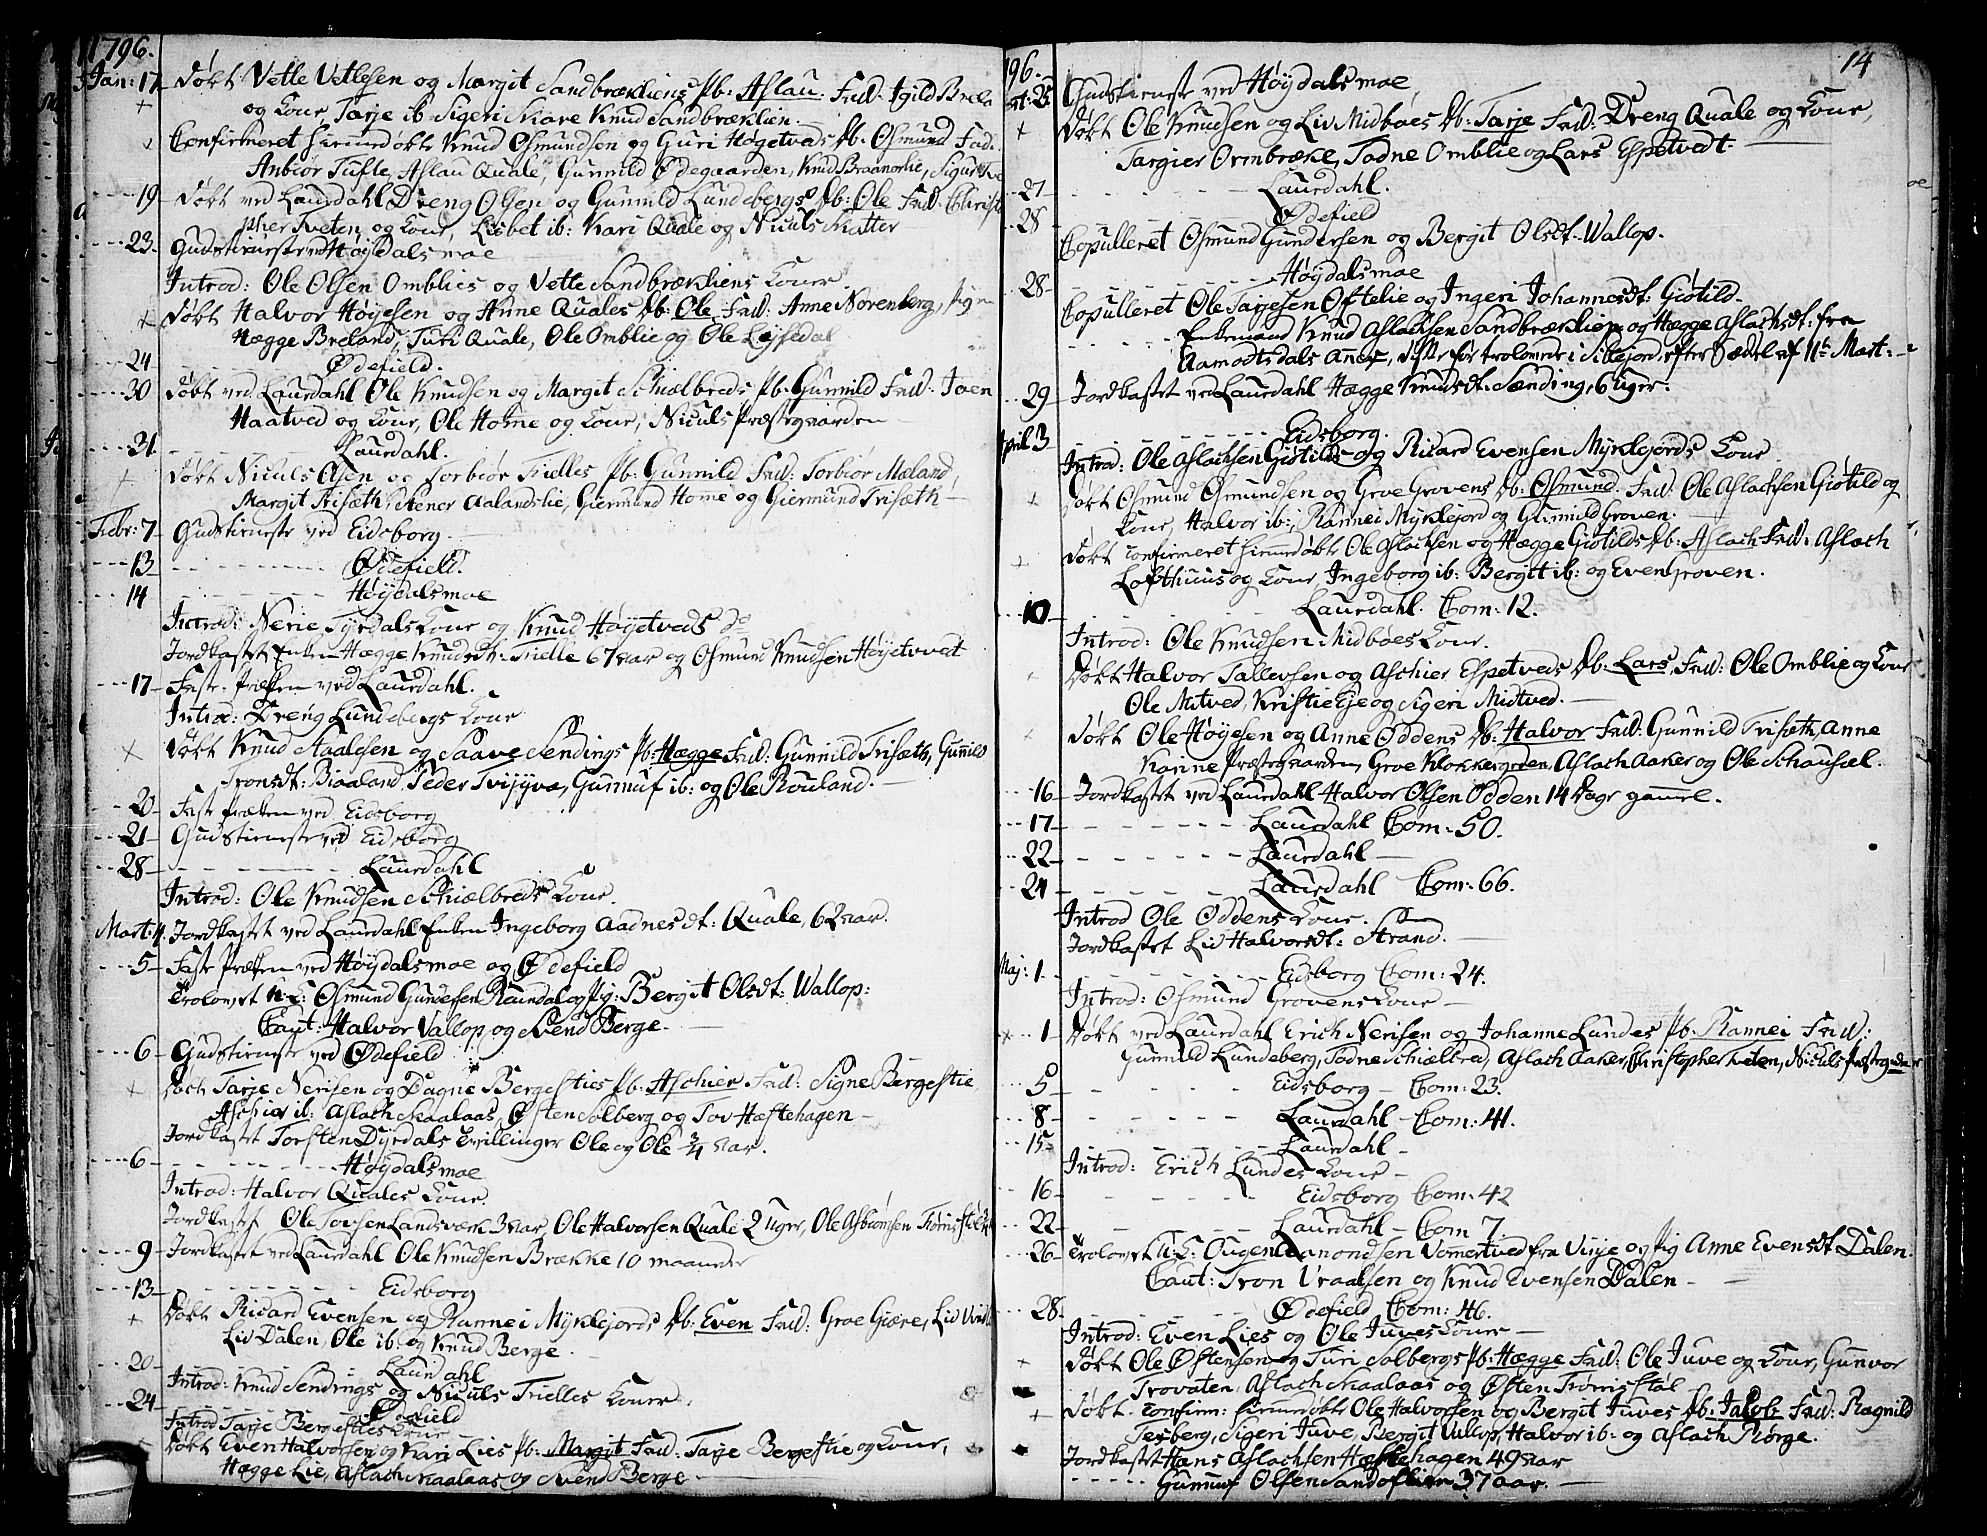 1796.
Jan: 17 Døbt Vetle Vetlesen og Margit Sandbrækliens Pb: Aslau. Fad: Igild Brela
og Kone, Tarje ib. Sigeri Skare Knud Sandbræklien.
Confirmeret hiemedøbte Knud Osmundsen og Guri Høgetveds Db. Osmund Fad.
Anbiør Tufte, Aslau Quale, Gunnild Ødegaarden, Knud Braanarlie, Sigur
19 Døbt ved Laurdahl Dreng Olsen og Gunnild Lundebergs Db: Ole Fad. Christo
pher Tveten og Kone, Lisbet ib: Kari Quale og Niculs Skatter
23. Gudstieneste ved Høydalsmoe
Introd: Ole Olsen Omblies og Vetle Sandbrækliens Koner.
Døbt Halvor Høyesen og Anne Quales Db: Ole Fad: Anne Norenberg,
Hægge Breland, Turi Quale, Ole Omblie og Ole
24 Ødefield.
30 Døbt ved Laurdahl Ole Knudsen og Margit Schiælbreds Pb: Gunnild Fad. Joen
Haatved og Kone, Ole Holme og Kone, Niculs Præstegaarden
31. Laurdahl.
Døbt Niculs Olsen og Torbiør Trælles Pb: Gunnild Fad: Torbiør Mæland,
Margit Trisæth, Stener Aalandslie, Giermund Home og Giermund Trisæth
Febr: 7 Gudstieneste ved Eidsborg.
13 Ødefield.
14 Høydalsmoe
Introd: Nerie Tyrdals Kone og Knud Høyetveds do
Jordkastet Enken Hægge Knudsdt. Trælle 67 aar og Osmund Knudsen Høyetvet
17 Faste-Præken ved Laurdahl.
Introd: Dreng Lundebergs Kone
Døbt Knud Staalesen og Saave Sendings Pb: Hægge Fad: Gunnild Trisæth, Gunnild
Tronsdt: Biaaland, Peder Tvisyva, Gunnuf ib: og Ole Rouland.
20 Faste præken ved Eidsborg
21 Gudstieneste ved Eidsborg
28 Laurdahl
Introd: Ole Knudsen Schiælbreds Kone.
Mart: 4. Jordkastet ved Laurdahl Enken Ingeborg Aadnesdt: Quale, 62 aar.
5 Faste Præken ved Høydalsmoe og Ødefield
Trolovet U.K: Osmund Gundersen Raundal og Pig: Bergit Olsdt: Wallop:
Caut: Halvor Vallop og Svend Berge.
6 Gudstieneste ved Ødefield
Døbt Tarje Nerisen og Dagne Bergesties Pb: Aschier Fad: Signe Bergestie,
Aschier ib: Aslach Skaalaas, Østen Solberg og Tov Hæftehagen
Jordkastet Torsten Dyrdals Tvillinger Ole og Ole 3/4 aar.
6 Høydalsmoe
Introd: Halvor Quales Kone.
Jordkastet Ole Tovsen Landsværk 3 aar, Ole Halvorsen Quale 2 Uger, Ole Asbiønsen
9 Jordkastet ved Laurdahl Ole Knudsen Brække 10 maaneder
13 Eidsborg
Døbt Ricard Evensen og Rannei Myklejords Db: Even Fad: Groe Giære, Liv
Liv Dalen, Ole ib: og Knud Berge
20 Laurdahl
Introd: Knud Sendings og Niculs Trælles Koner.
24 Ødefield
Introd Tarje Bergesties Kone
Døbt Even Halvorsen og Kari Lies Pb: Margit Fad: Tarje Bergestie og Kone,
Hægge Lie, Aslach Skaalaas og Svend Berge
14
96.
25 Gudstieneste ved Høydalsmoe
Døbt Ole Knudsen og Liv Midbøes Db: Tarje Fad: Dreng Quale og Kone,
Targier Ormbræke, Tadne Omblie og Lars Espetvedt.
27 Laurdahl.
28 Ødefield
Copulleret Osmund Gundersen og Bergit Olsdt. Wallop.
28 Høydalsmoe
Copulleret Ole Tarjesen Oftelie og Ingeri Johannesdt: Giøtild.
Enkemand Knud Aslachsen Sandbræklien og Hægge Aslachsdt: fra
Aamodtsdals Anex, sidste før trolovede i Sillejord, efter Sædel af 11te Mart:
29 Jordkastet ved Laurdahl Hægge Knudsdt: Sænding, 6 Uger.
April 3 Eidsborg.
Introd: Ole Aslachsen Giøtilds og Ricard Evensen Myklejords Koner
Døbt Osmund Osmundsen og Groe Grovens Db: Osmund. Fad: Ole Aslachsen Giøtild og
Kone, Halvor ib:, Rannei Myklejord og Gunnild Groven.
Døbt confirmeret hiemedøbte Ole Aslachsen og Hægge Giøtilds Db: Aslach Fad: Aslach
Lofthuus og Kone, Ingeborg ib: Bergit ib: og Even Groven.
10 Laurdahl. Com: 12.
Introd: Ole Knudsen Midbøes Kone.
Døbt Halvor Tallevsen og Aschier Espetveds Db: Lars, Fad: Ole Omblie og Kone
Ole Mitved, Kristie Eje og Sigeri Midtved.
Døbt Ole Høyesen og Anne Oddens Db: Halvor Fad: Gunnild Trisæth, Anne
Karine Præstegaarden, Groe Klokkergrden, Aslach Aaker og Ole Schausæl.
16 Jordkastet ved Laurdahl Halvor Olsen Odden 14 Dage gammel.
17 Laurdahl Com: 50.
22 Laurdahl
24 Laurdahl Com: 66.
Introd Ole Oddens Kone.
Jordkastet Liv Halvorsdt: Strand.
Maj: 1. Eidsborg Com: 24.
Introd: Osmund Grovens Kone
1 Døbt ved Laurdahl Erich Nerisen og Johanne Lundes Pb: Rannei Fad:
Gunnild Lundeberg, Tadne Schiælbred, Aslach Aaker, Christopher Tveten, Niculs Præstegrden
5 Eidsborg Com: 23.
8 Laurdahl Com: 41.
15 Laurdahl
Introd: Erich Lundes Kone
16 Eidsborg Com: 42
22 Laurdahl Com 7.
26 Trolovet U.K: Ougen Aanondsen Vomertved fra Vinje og Pig Anne Evensdt Dalen.
Caut: Tron Vraalsen og Knud Evensen Dalen
28. Ødefield Com: 46.
Introd: Even Lies og Ole Juves Koner
Døbt Ole Østensen og Turi Solbergs Pb: Hægge Fad: Ole Juve og Kone, Gunvor
Trovaten, Aslach Skaalaas og Østen Tronsstøl
Døbt confirm: hiemedøbte Ole Halvorsen og Bergit Juves Db: Jacob Fad: Ragnild
Jesberg, Sigeri Juve, Bergit Vallop, Halvor ib: og Aslach Rørge.
Jordkastet Hans Aslachsen Hæftehagen 49 aar
Gunnuf Olsen Sandoflien 37 aar.